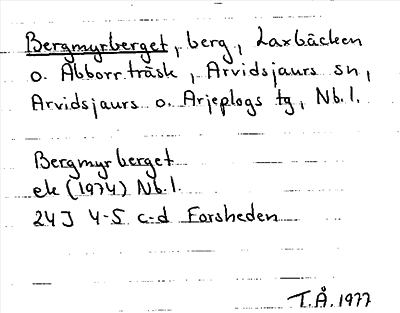 Bergmyrberget, berg, Laxbäcken
o. Abborrträsk, Arvidsjaurs sn,
Arvidsjaurs o. Arjeplogs tg, Nb.l.
Bergmyrberget
ek (1974) Nb.l.
24J 4-5 c-d Forsheden
T.Å. 1977